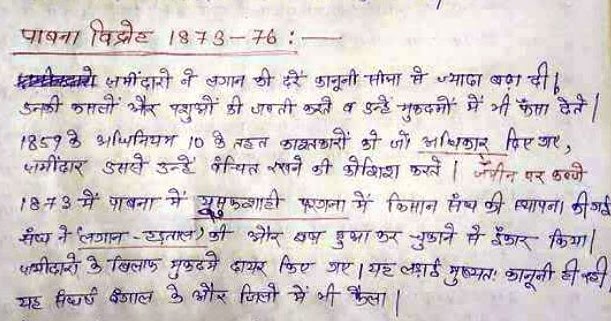 पाबना विद्रोह 1873-76 : —
जमींदारो ने लगान की दरें कानूनी सीमा से ज्यादा बढ़ा दी|
उनकी फसलों और पशुओं की जब्ती करते व उन्हे मुकदमों में भी फंसा देते|
1859 के अधिनियम 10 के तहत काश्तकारों को जो अधिकार दिए गए,
जमींदार उससे उन्हें वंचित रखने की कोशिश करते | जमीन पर कब्जे
1873 में पाबना में युसुफशाही परगना में किसान संघ की स्थापना की गई
संघ ने लगान-हड़ताल की और बढ़ा हुआ कर चुकाने से इंकार किया|
जमींदारो के खिलाफ मुकदमें दायर किए गए | यह लड़ाई मुख्यतः कानूनी ही रही
यह संघर्ष बंगाल के और जिलो में भी फैला |